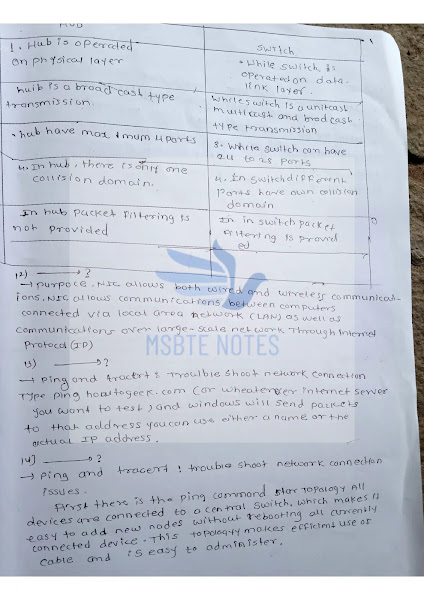 HUB
switch
1. Hub is operated
on physical layer
• While switch is
operated on data-
link layer.
hub is a broad cast type
transmission.
While switch is a unicast
multicast and brod cast
type transmission
• hub have maximum 4 ports
3. While switch can have
24 to 28 ports
4. In hub, there is only one
collision domain.
4. In switch different
Ports have own collision
domain
In hub packet filtering is
not provided
In in switch packet
filtering is provid
ed
12) → ?
→ purpose. NIC allows both wired and wireless communicat-
ions. NIC allows communications between computers
connected via local area network (LAN) as well as
communications over large-scale network through Internet
Protocol (IP)
MSBTE NOTES
13) → ?
→ Ping and tracert : Trouble shoot network connection
Type ping howtogeek.com (or wheatenver internet server
you want to test) and windows will send packets
to that address you can use either a name or the
actual IP address.
14] → ?
→ Ping and tracert : trouble shoot network connection
issues.
First there is the ping command star topology All
devices are connected to a central switch, which makes it
easy to add new nodes without rebooting all currently
connected device. This topology makes efficient use of
cable and is easy to administer.